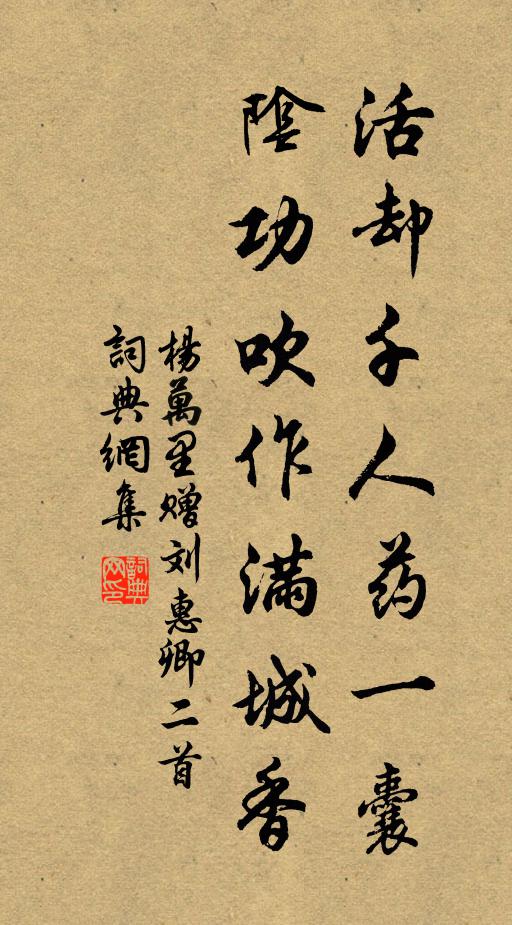 活却千人药一囊
陰功吹作满城香
楊萬里赠刘惠卿二首
詞典網集
詞典网印